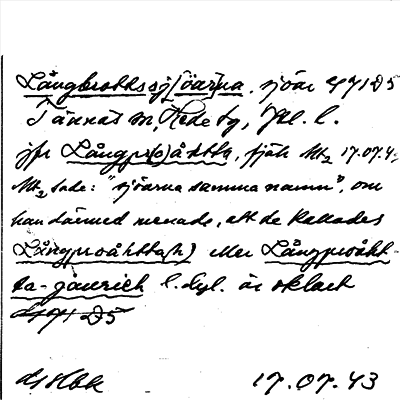 Långbrottssjöarna. sjöar 471D5
Tännäs sn, Hede tg, Jtl. l.
jfr Långpr(o)åhtta, fjäll Mt2 17.07.43
Mt2 sade: "sjöarna samma namn", om
han därmed menade, att de kallades
Långproåhtta(h) eller Långproåht-
ta-jaurieh l. dyl. är oklart
471 D5
17.07.43